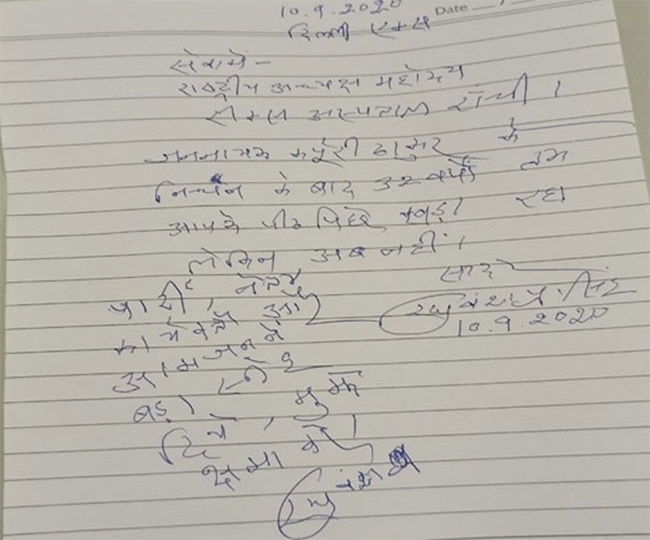 10.9.2020
Date
दिल्ली एम्स
सेवामे -
राष्ट्रीय अध्यक्ष महोदय
रीम्स अस्पताल राँची ।
जननायक कर्पूरी ठाकुर के
निधन के बाद ३२ वर्षों तक
आपके पीठ पिछे खड़ा रहा
लेकिन अब नहीं ।
पार्टी, नेता,
कार्यकर्ता और
आमजन ने
बड़ा स्नेह
दिये,
मुझे
क्षमा करें ।
सादर
रघुवंश प्रसाद सिंह
10.9.2020